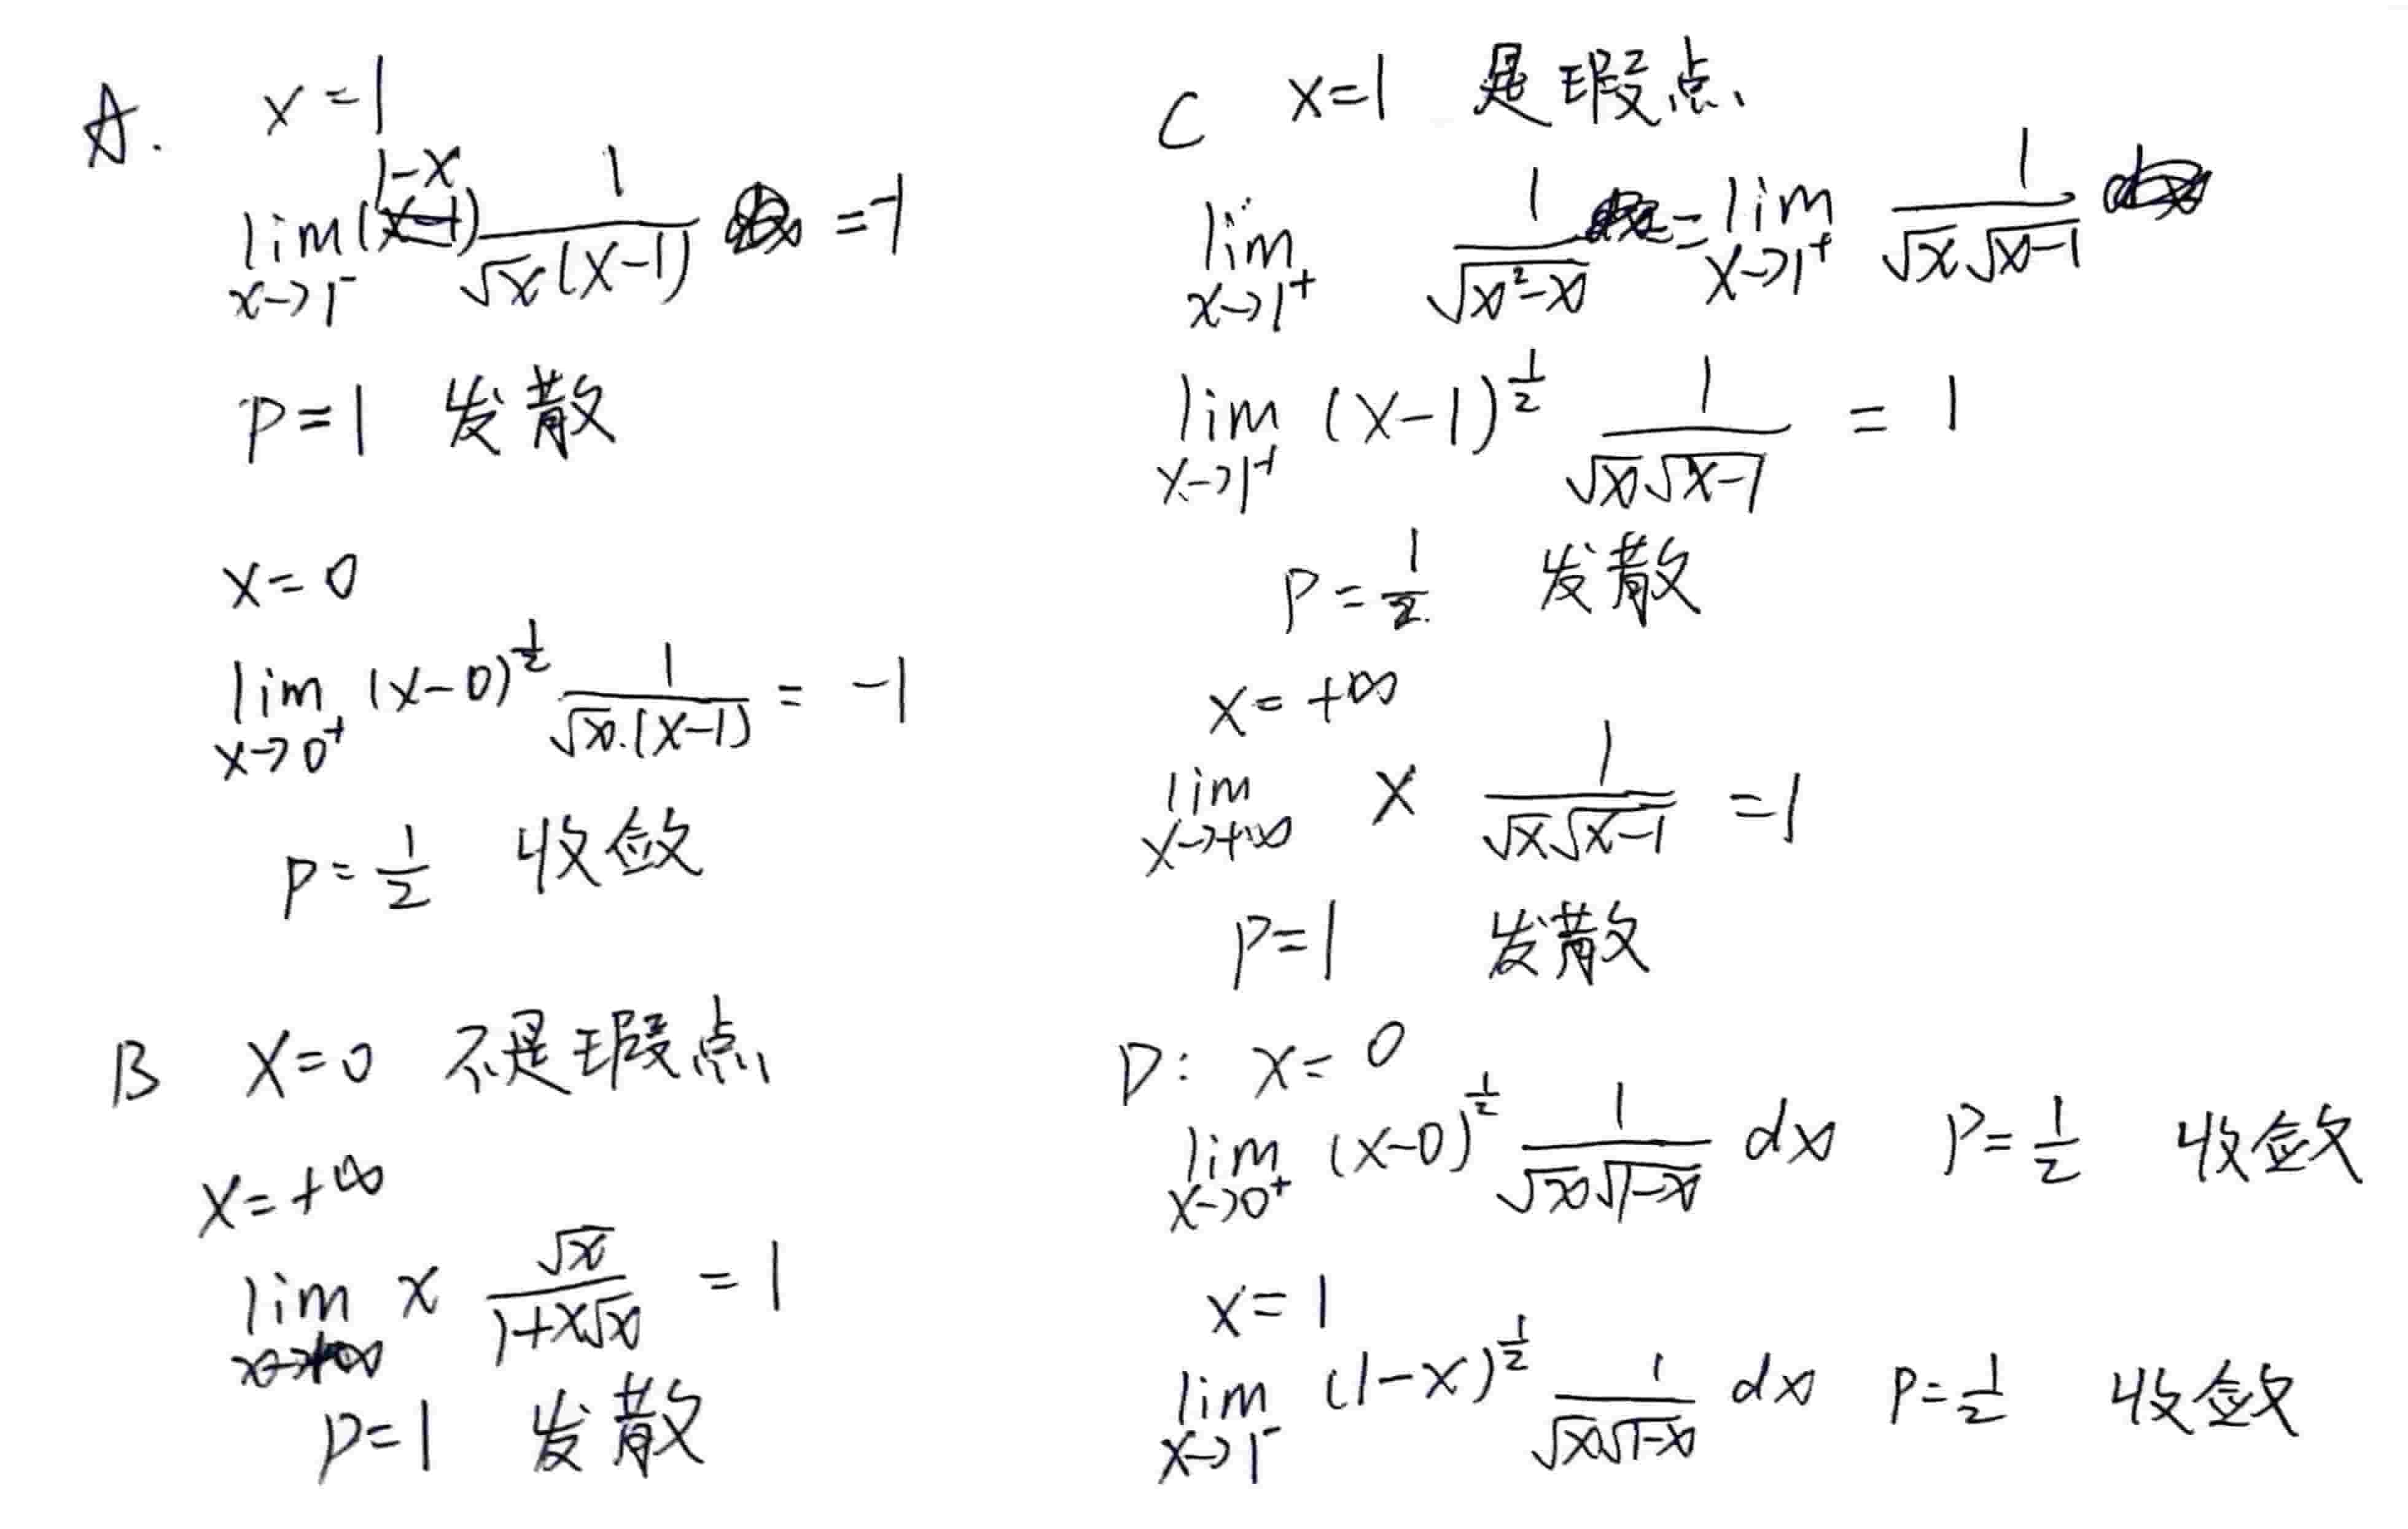 A. x=1
lim x→1⁻ (1-x) 1/(√x(x-1)) =-1
P=1 发散
x=0
lim x→0⁺ (x-0)^(1/2) 1/(√x.(x-1)) = -1
P=1/2 收敛
B x=0 不是瑕点
x=+∞
lim x→+∞ x √x/(1+x√x) =1
P=1 发散
C x=1 是瑕点
lim x→1⁺ 1/√(x²-x) = lim x→1⁺ 1/(√x√(x-1))
lim x→1⁺ (x-1)^(1/2) 1/(√x√(x-1)) = 1
P=1/2 发散
x=+∞
lim x→+∞ x 1/(√x√(x-1)) =1
P=1 发散
D: x=0
lim x→0⁺ (x-0)^(1/2) 1/(√x√(1-x)) dx P=1/2 收敛
x=1
lim x→1⁻ (1-x)^(1/2) 1/(√x√(1-x)) dx P=1/2 收敛